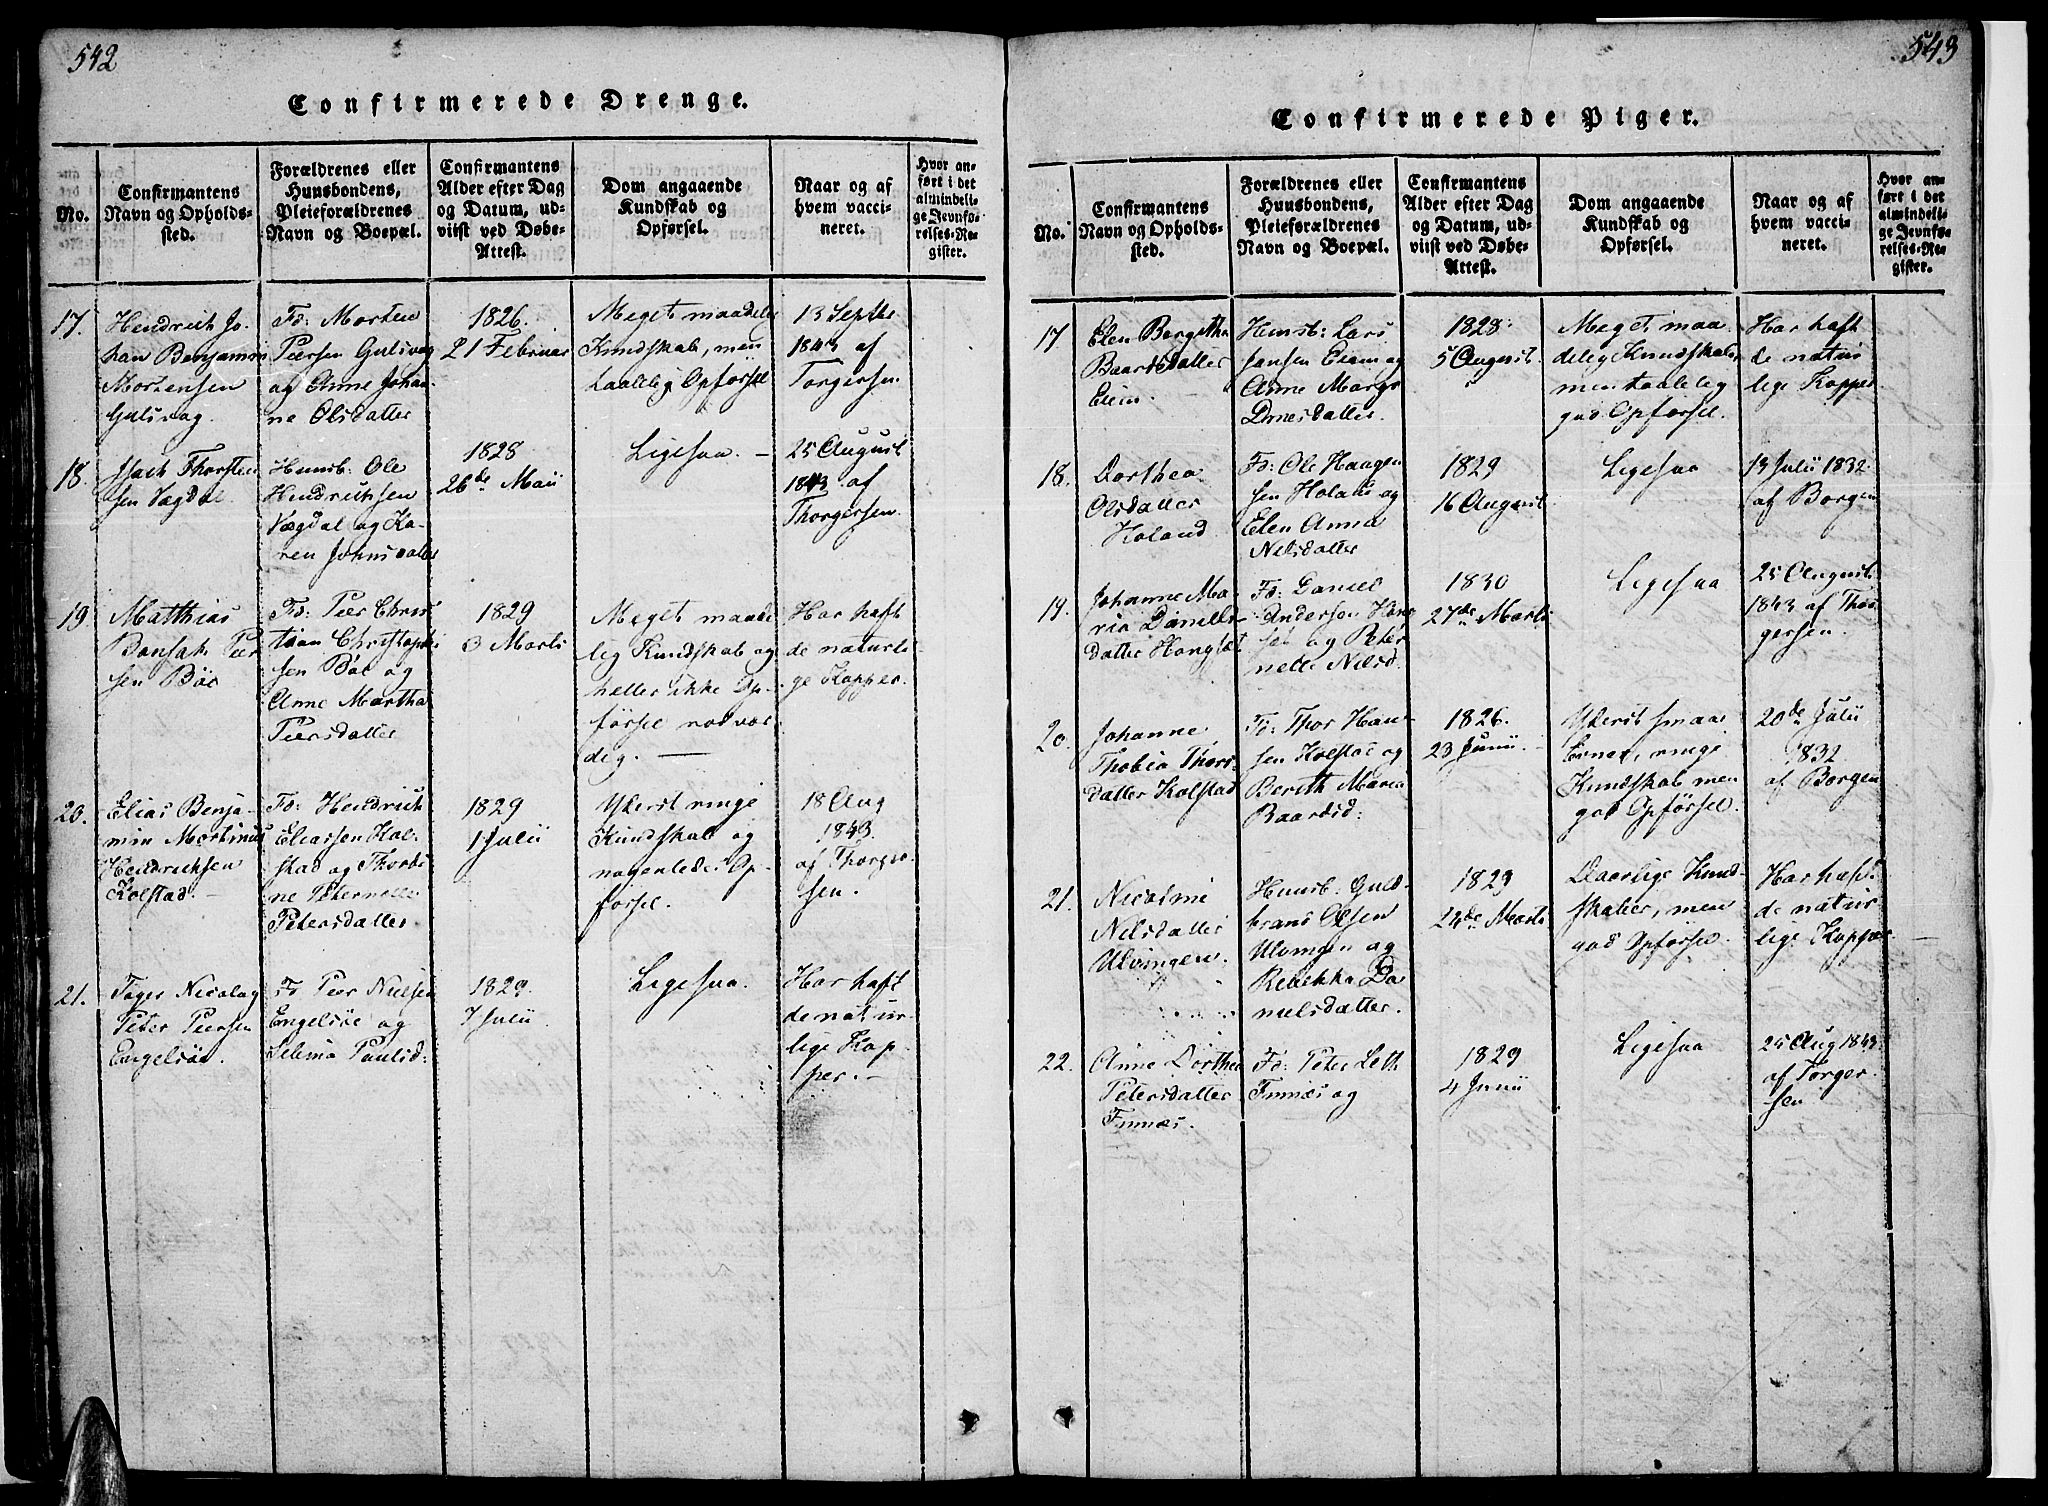 542
Confirmerede Drenge.
No.
Confirmantens
Navn og Opholds-
sted.
Forældrenes eller
Huusbondens,
Pleieforældrenes
Navn og Boepæl.
Confirmantens
Alder efter Dag
og Datum, ud-
viist ved Døbe-
Attest.
Dom angaaende
Kundskab og
Opførsel.
Naar og af
hvem vacci-
neret.
Hvor an-
ført i det
almindeli-
ge Jevnfø-
relses-Re-
gister.
17.
Hendrich Jo-
han Benjamin
Mortensen
Gulsvag.
Fd: Morten
Peersen Gulsvag
og Anne Johan
ne Olsdatter
1826.
21 Februar
Meget maadelig
Kundskab, men
taalelig Opførsel
13 Septbr
1843 af
Torgersen.
18.
Isach Thorsten
sen Vagdal.
Huusb: Ole
Hendrichsen
Vægdal og Ka-
ren Johnsdatter
1828
26de Maii
Ligesaa. –
25 August
1843 af
Thorgersen.
19.
Matthias
Bonsak Peer
sen Böe
Fd: Peer Chris
tian Christophe
sen Böe og
Anne Martha
Peersdatter
1829
3 Marti
Meget maade
lig Kundskab og
heller ikke Op-
försel rosvær
dig. –
Har haft
de naturli-
ge Kopper.
20.
Elias Benja-
min Mortinus
Hendrichsen
Kolstad. –
Fd: Hendrich
Eliassen Kol-
stad og Thordi
ne Peternelle
Petersdatter
1829
1 Julii
Yderst ringe
Kundskab og
nogenledes Op-
førsel.
18 Aug
1843.
af Thorger
sen.
21.
Toger Nicolay
Peter Peersen
Engelsöe.
Fd Peer Nielsen
Engelsöe og
Selema Paulsd:
1829.
7 Julii
Ligesaa.
Har haft
de natur-
lige Kop-
per. –
543
Confirmerede Piger.
No.
Confirmantens
Navn og Opholds-
sted.
Forældrenes eller
Huusbondens,
Pleieforældrenes
Navn og Boepæl.
Confirmantens
Alder efter Dag
og Datum, ud-
viist ved Døbe-
Attest.
Dom angaaende
Kundskab og
Opførsel.
Naar og af
hvem vacci-
neret.
Hvor an-
ført i det
almindeli-
ge Jevnfø-
relses-Re-
gister.
17
Elen Bergitha
Baardsdatter
Eiem.
Huusb: Lars
Jensen Eiem og
Anne Margr
1828.
5 August.
Meget maa
delig Kundskab,
men taalelig
god Opførsel.
Har haft
de natur
lige Kopper.
18.
Dorthea
Olsdatter
Holand
Fd: Ole Haagen
sen Holand og
Elen Anna
Nilsdatter
1829
16 August.
Ligesaa
13 Julii 1832.
af Borgen
19.
Johanne Ma-
ria Daniels-
datter Hongset
Fd: Daniel
Andersen Hong
set og Peter
nelle Nilsd.
1830
27de Marti
Ligesaa
25 August
1843 af Thor
gersen.
20.
Johanne
Thobia Thors
datter Kolstad
Fd: Thor Han-
sen Kolstad og
Berith Maria
Baardsd:
1826.
23 Junii.
Yderst smaae
Evner, ringe
Kundskab men
god Opförsel.
20de Julii
1832
af Borgen
21.
Nicoline
Nilsdatter
Ulvingen.
Huusb: Guld-
brand Olsen
Ulvingen og
Rebekka Da
nielsdatter.
1829
24de Marti
Daarlige Kund-
skaber, men
god Opførsel.
Har hafd
de natur
lige Kopper
22.
Anne Dorthea
Petersdatter
Finnæs.
Fd: Peter Leth
Finnæs og
1829
4 Junii
Ligesaa
25 Aug 1843.
af Torger
sen